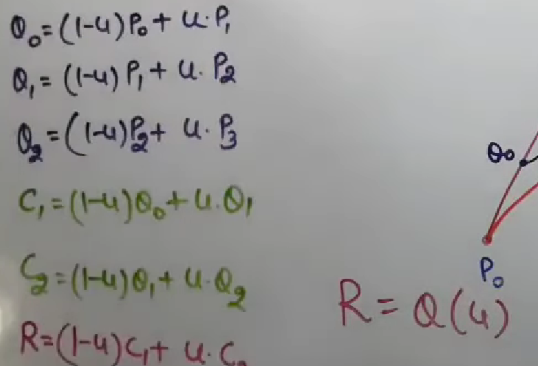 Q₀=(1-u)P₀+ u.P₁
Q₁=(1-u) P₁ + u. P₂
Q₂=(1-u)P₂+ u. P₃
C₁=(1-u)Q₀+ u.Q₁
C₂=(1-u)Q₁+ u.Q₂
R=(1-u)C₁+ u.C₂
Q₀
P₀
R= Q(u)